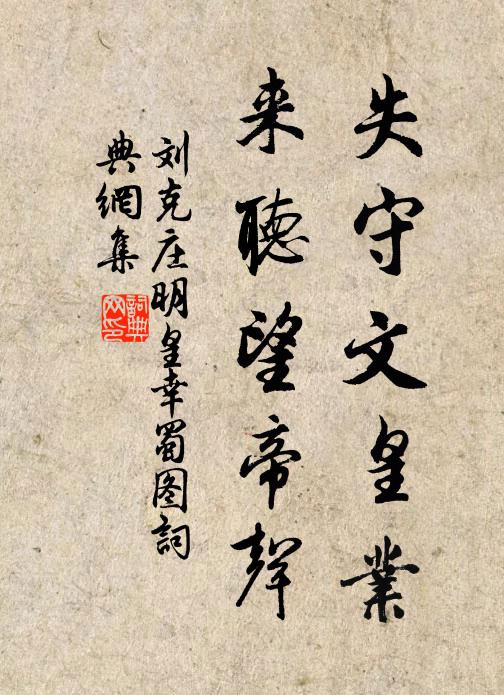 失守文皇業
来聽望帝聲
刘克庄明皇幸蜀图詞
典網集
詞典
网印